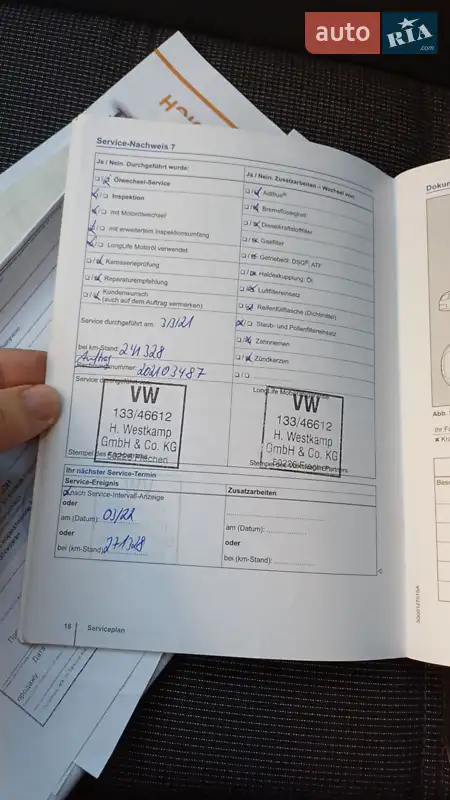 auto RIA.com
Service-Nachweis 7
Ja / Nein. Durchgeführt wurde:
Ölwechsel-Service
Inspektion
mit Motorölwechsel
mit erweitertem Inspektionsumfang
LongLife Motoröl verwendet
Karosserieprüfung
Reparaturempfehlung
Kundenwunsch
(auch auf dem Auftrag vermerken)
Service durchgeführt am: 3/3/21
bei km-Stand: 241328
Rechnungsnummer:
Service durchgeführt von:
VW
133/46612
H. Westkamp
GmbH & Co. KG
Ja / Nein. Zusatzarbeiten – Wechsel von:
AdBlue®
Bremsflüssigkeit
Dieselkraftstofffilter
Gasfilter
Getriebeöl: DSG®, ATF
Haldexkupplung: Öl
Luftfiltereinsatz
Reifenfüllflasche (Dichtmittel)
Staub- und Pollenfiltereinsatz
Zahnriemen
Zündkerzen
LongLife
VW
133/46612
H. Westkamp
GmbH & Co. KG
Ihr nächster Service-Termin
Service-Ereignis
nach Service-Intervall-Anzeige
oder
am (Datum): 03/21
oder
bei (km-Stand): 271328
Zusatzarbeiten
am (Datum):
oder
bei (km-Stand):
18 Serviceplan